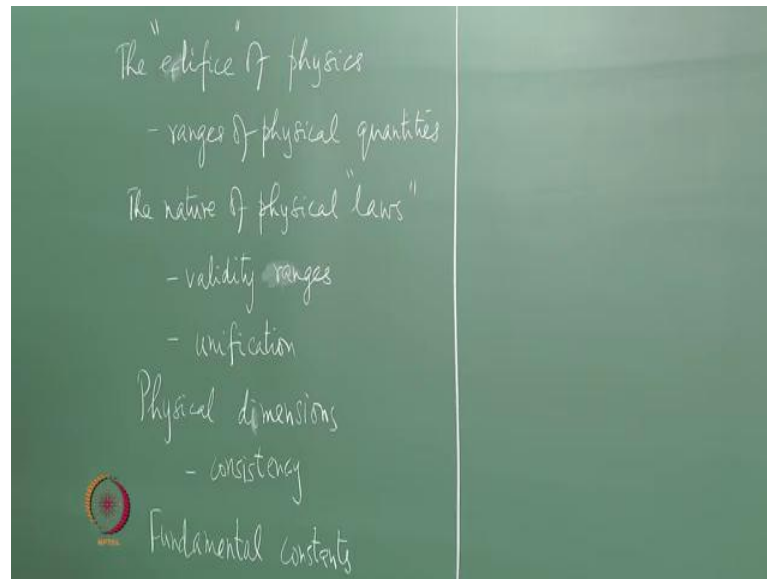 The "edifice" of physics
- ranges of physical quantities
The nature of physical "laws"
- validity ranges
- unification
Physical dimensions
- consistency
Fundamental constants
NPTEL